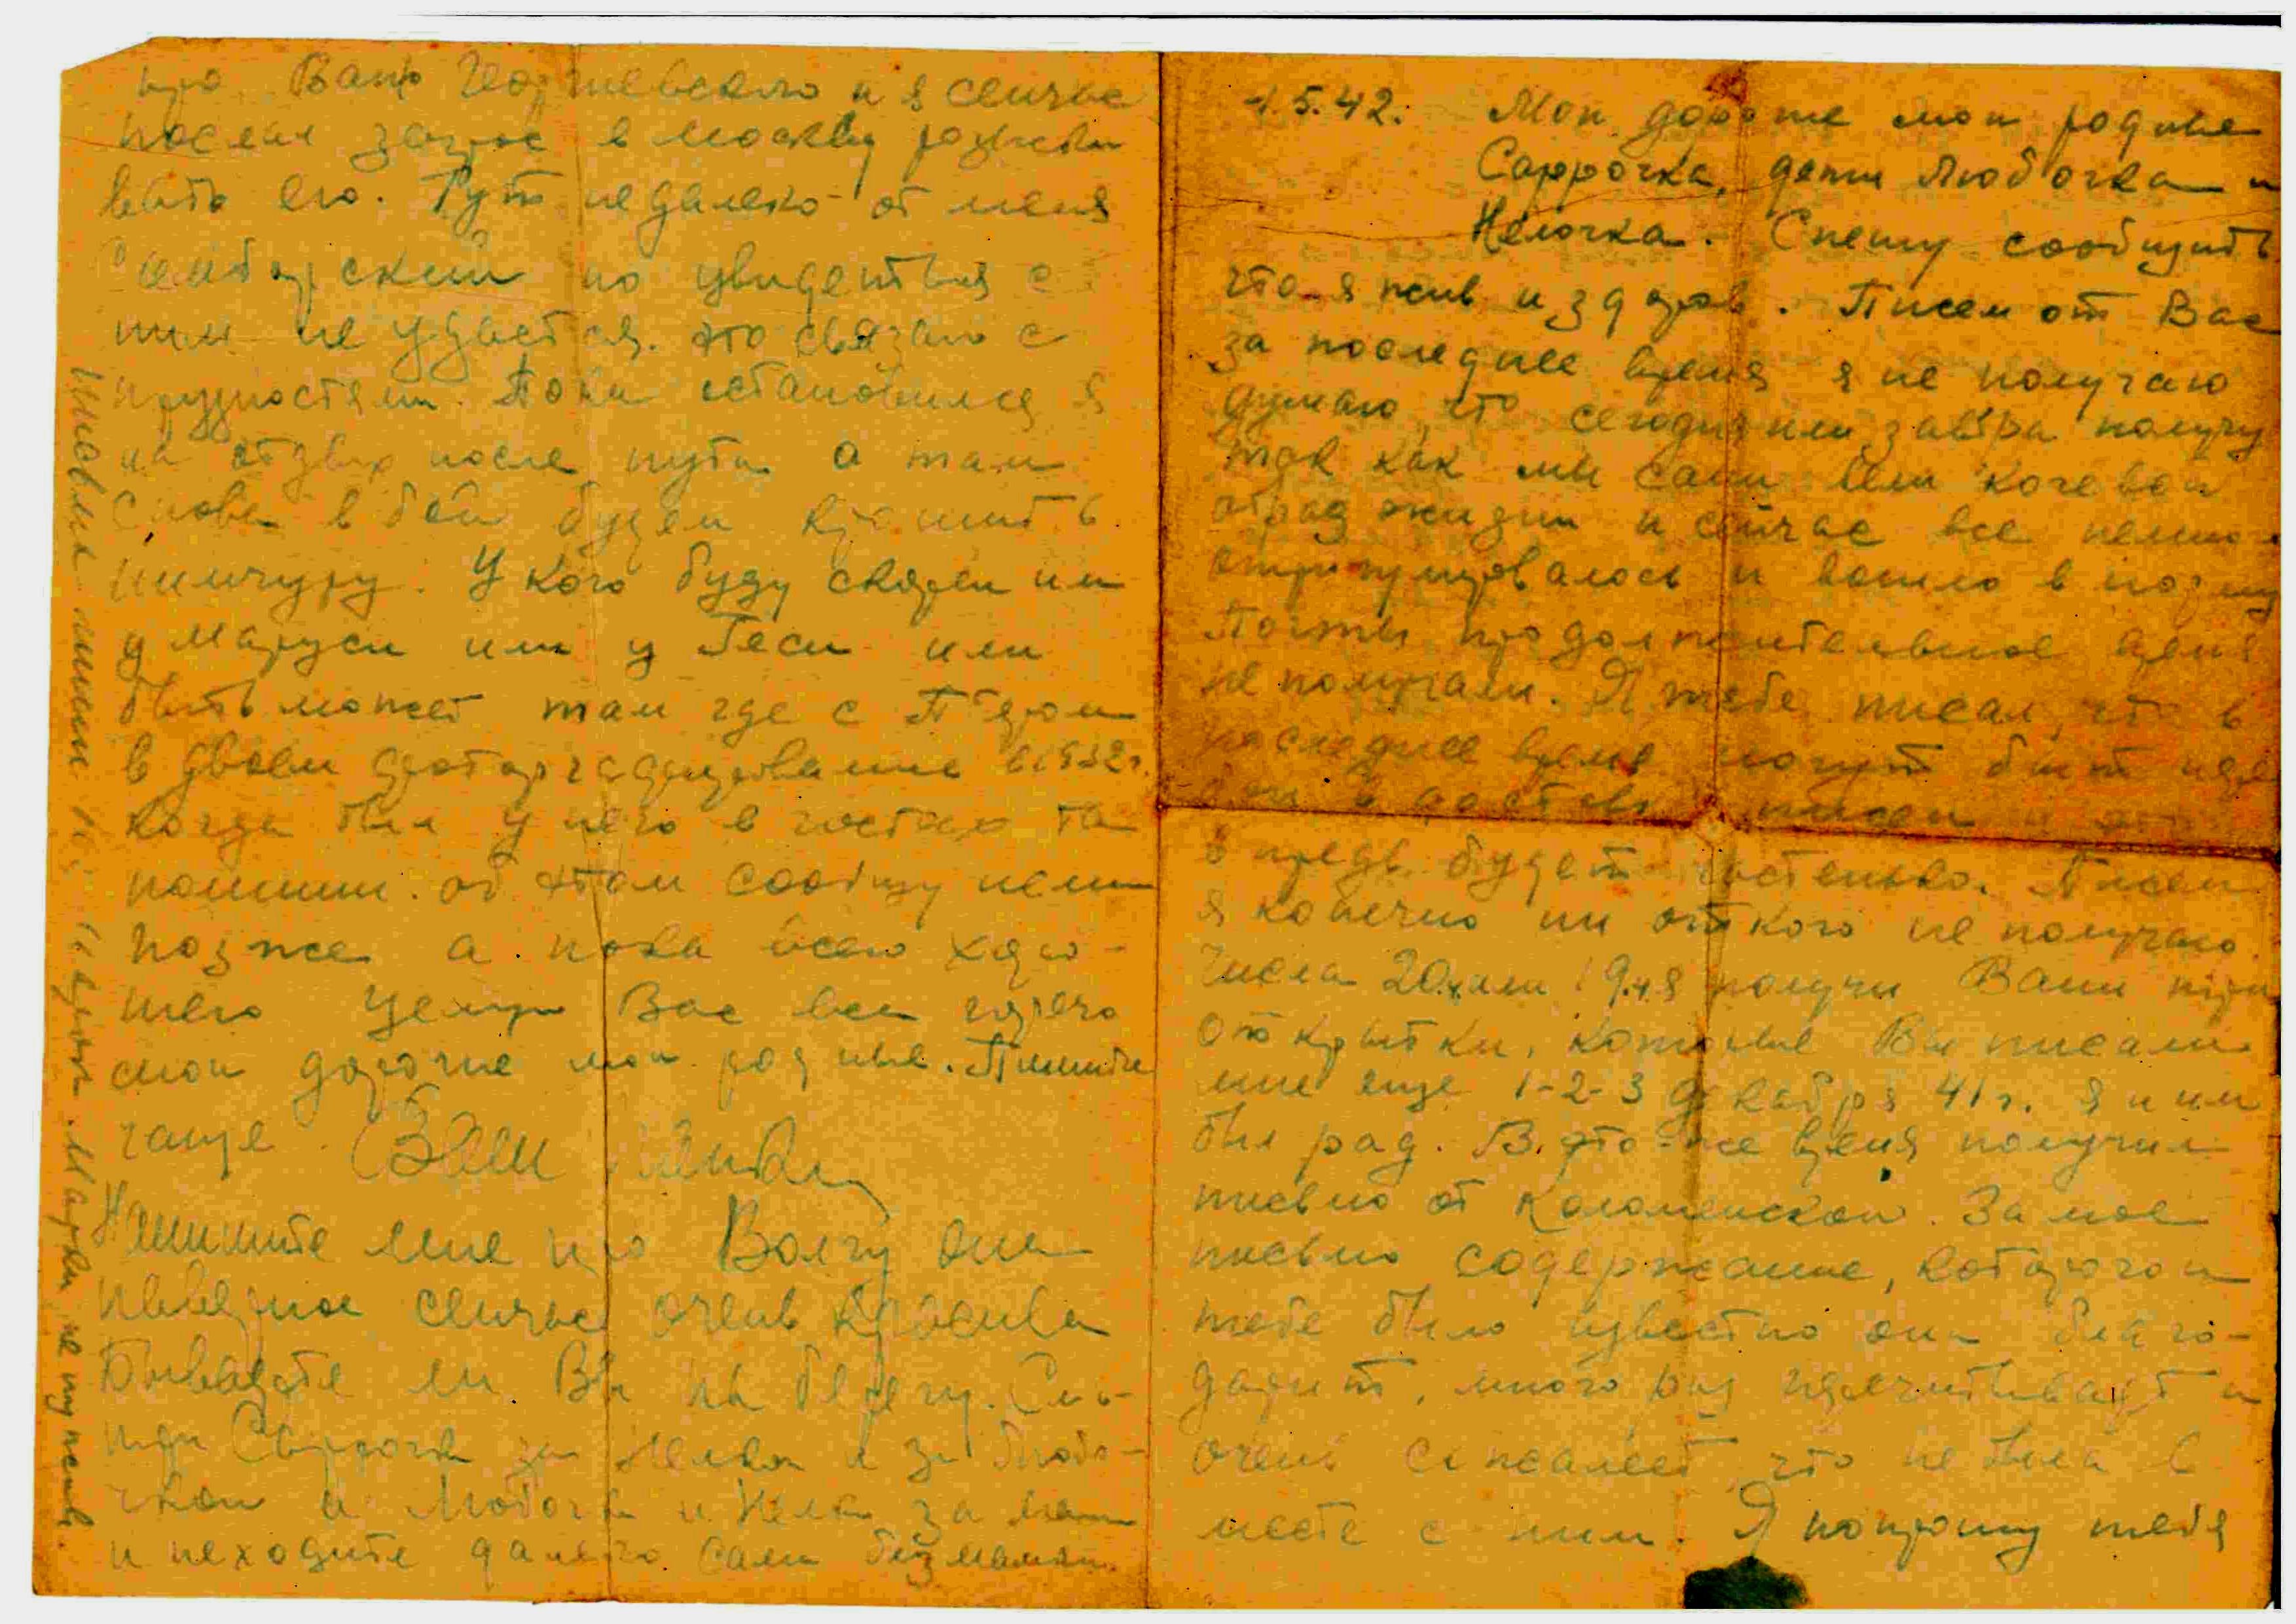 1.5.42. Мои дорогие мои родные
Саррочка, дети Любочка и
Нелочка. Спешу сообщить
что я жив и здоров. Писем от Вас
за последнее время я не получаю
думаю, что сегодня или завтра получу
так как мы сами вели кочевой
образ жизни и сейчас все немно
и вошло в норму
Почты продолжительное время
не получали. Я тебе писал, что в
последнее время могут быт пере
в доставки писем и это
впредь будет частенько. Писем
я конечно ни от кого не получаю.
Числа 20.4 или 19.4 я получи Ваши три
открытки, которые Вы писали
мне еще 1-2-3 декабря 41г. я и им
был рад. В это-же время получил
письмо от Коломенской. За мое
письмо содержание, которого и
тебе было известно она благо-
дарит, много раз перечитывает и
очень сожалеет, что не была в
месте с ним. Я попрошу тебя
про Ваню и я сейчас
послал запрос в Москву разыски
вать его. Тут недалеко от меня
но увидеться с
ним не удается. это связано с
трудностями. Пока остановился я
на отдых после пути а там
снова в бой будем крошить
нимчуру. У кого буду скорей или
у Маруси или у Песи или
быть может там где с Петром
в двоем в 1932г.
когда был у него в гостях ты
помниш. об этом сообщу немн
позже а пока всего хоро-
шего целую Вас всех горячо
мои дорогие мои родные. Пишите
чаще. Ваш
Напишите мне про Волгу она
наверное сейчас очень красива
Бываете ли Вы на берегу. Смо-
три Саррочка за Нелей и за Любо-
чкой и Любочка и Неля за мамой
и неходите далеко сами без мамы.